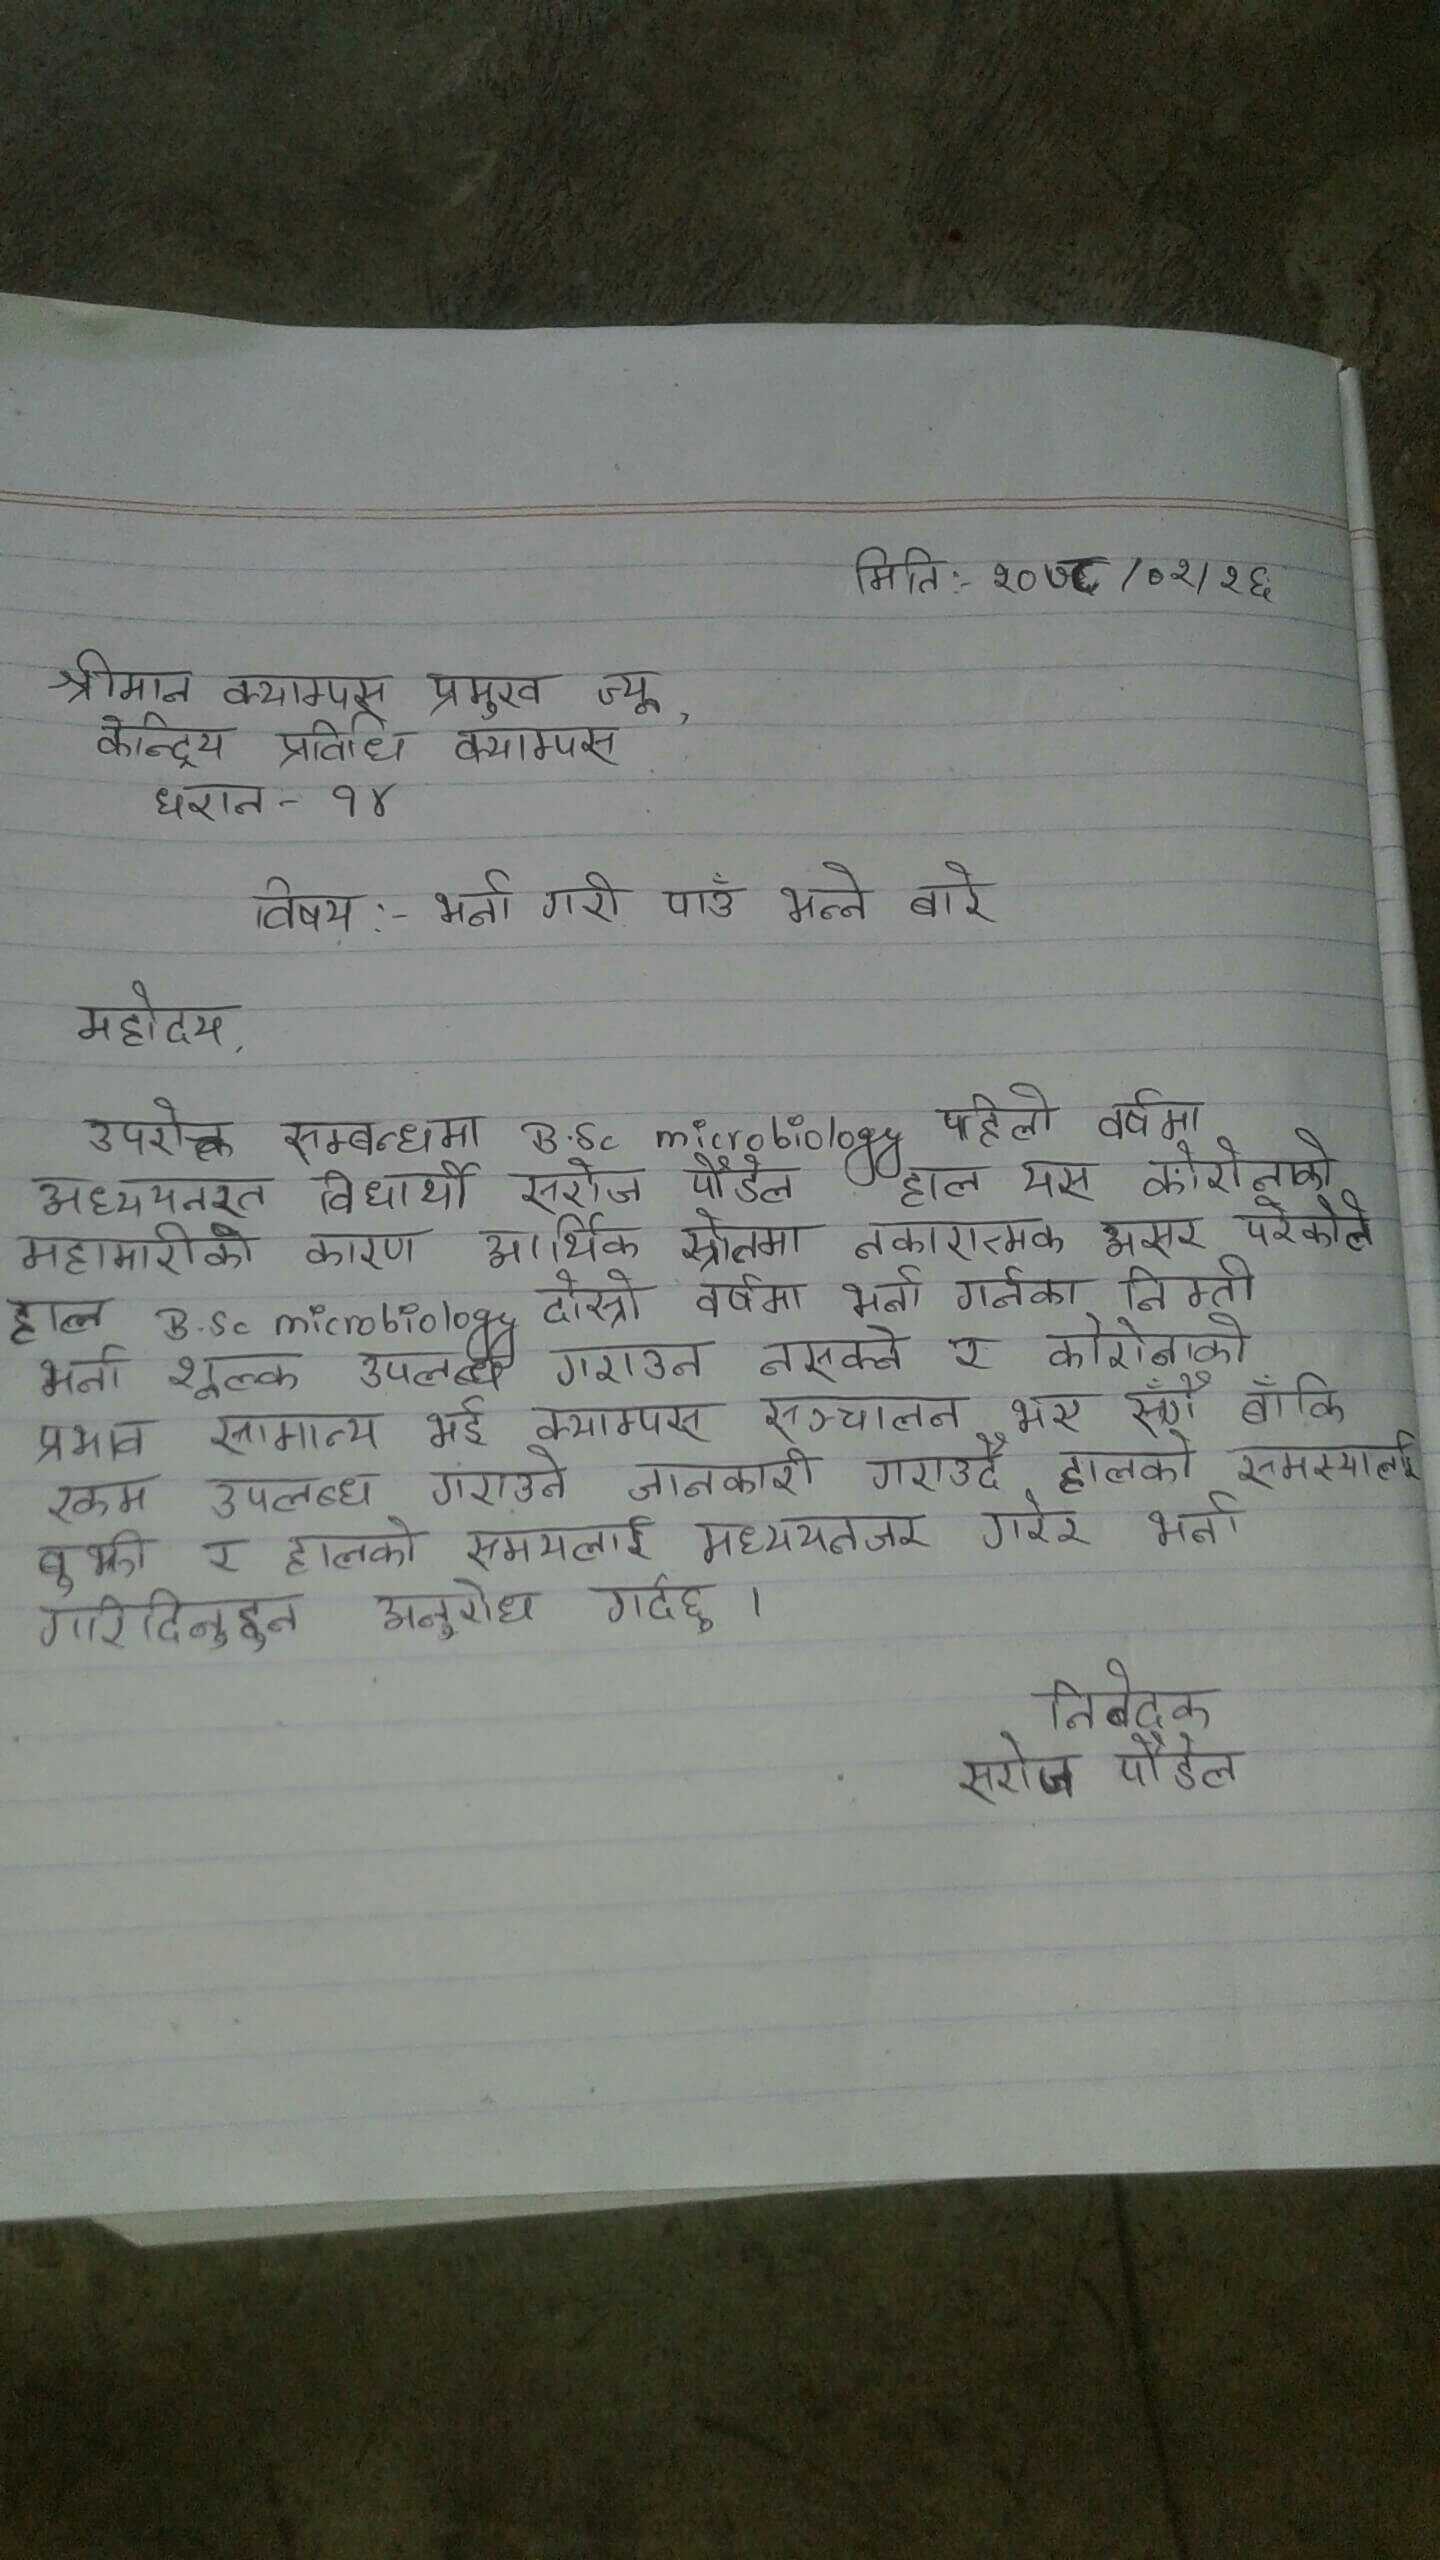 मिति:- २०७८/०२/२६
श्रीमान क्याम्पस प्रमुख ज्यू,
केन्द्रिय प्रविधि क्याम्पस
धरान - १४
विषय :- भर्ना गरी पाउँ भन्ने बारे
महोदय,
उपरोक्त सम्बन्धमा B.Sc microbiology पहिलो वर्षमा
अध्ययनरत विधार्थी सरोज पौडेल हाल यस कोरोनाको
महामारीको कारण आर्थिक स्रोतमा नकारात्मक असर परेकोले
हाल B.Sc microbiology दोस्रो वर्षमा भर्ना गर्नका निम्ती
भर्ना शूल्क उपलब्ध गराउन नसक्ने र कोरोनाको
प्रभाव सामान्य भई क्याम्पस सञ्चालन भए सँगै बाँकि
रकम उपलब्ध गराउने जानकारी गराउदै हालको समस्यालाई
बुझी र हालको समयलाई मध्ययनजर गरेर भर्ना
गरिदिनुहुन अनुरोध गर्दछु ।
निबेदक
सरोज पौडेल